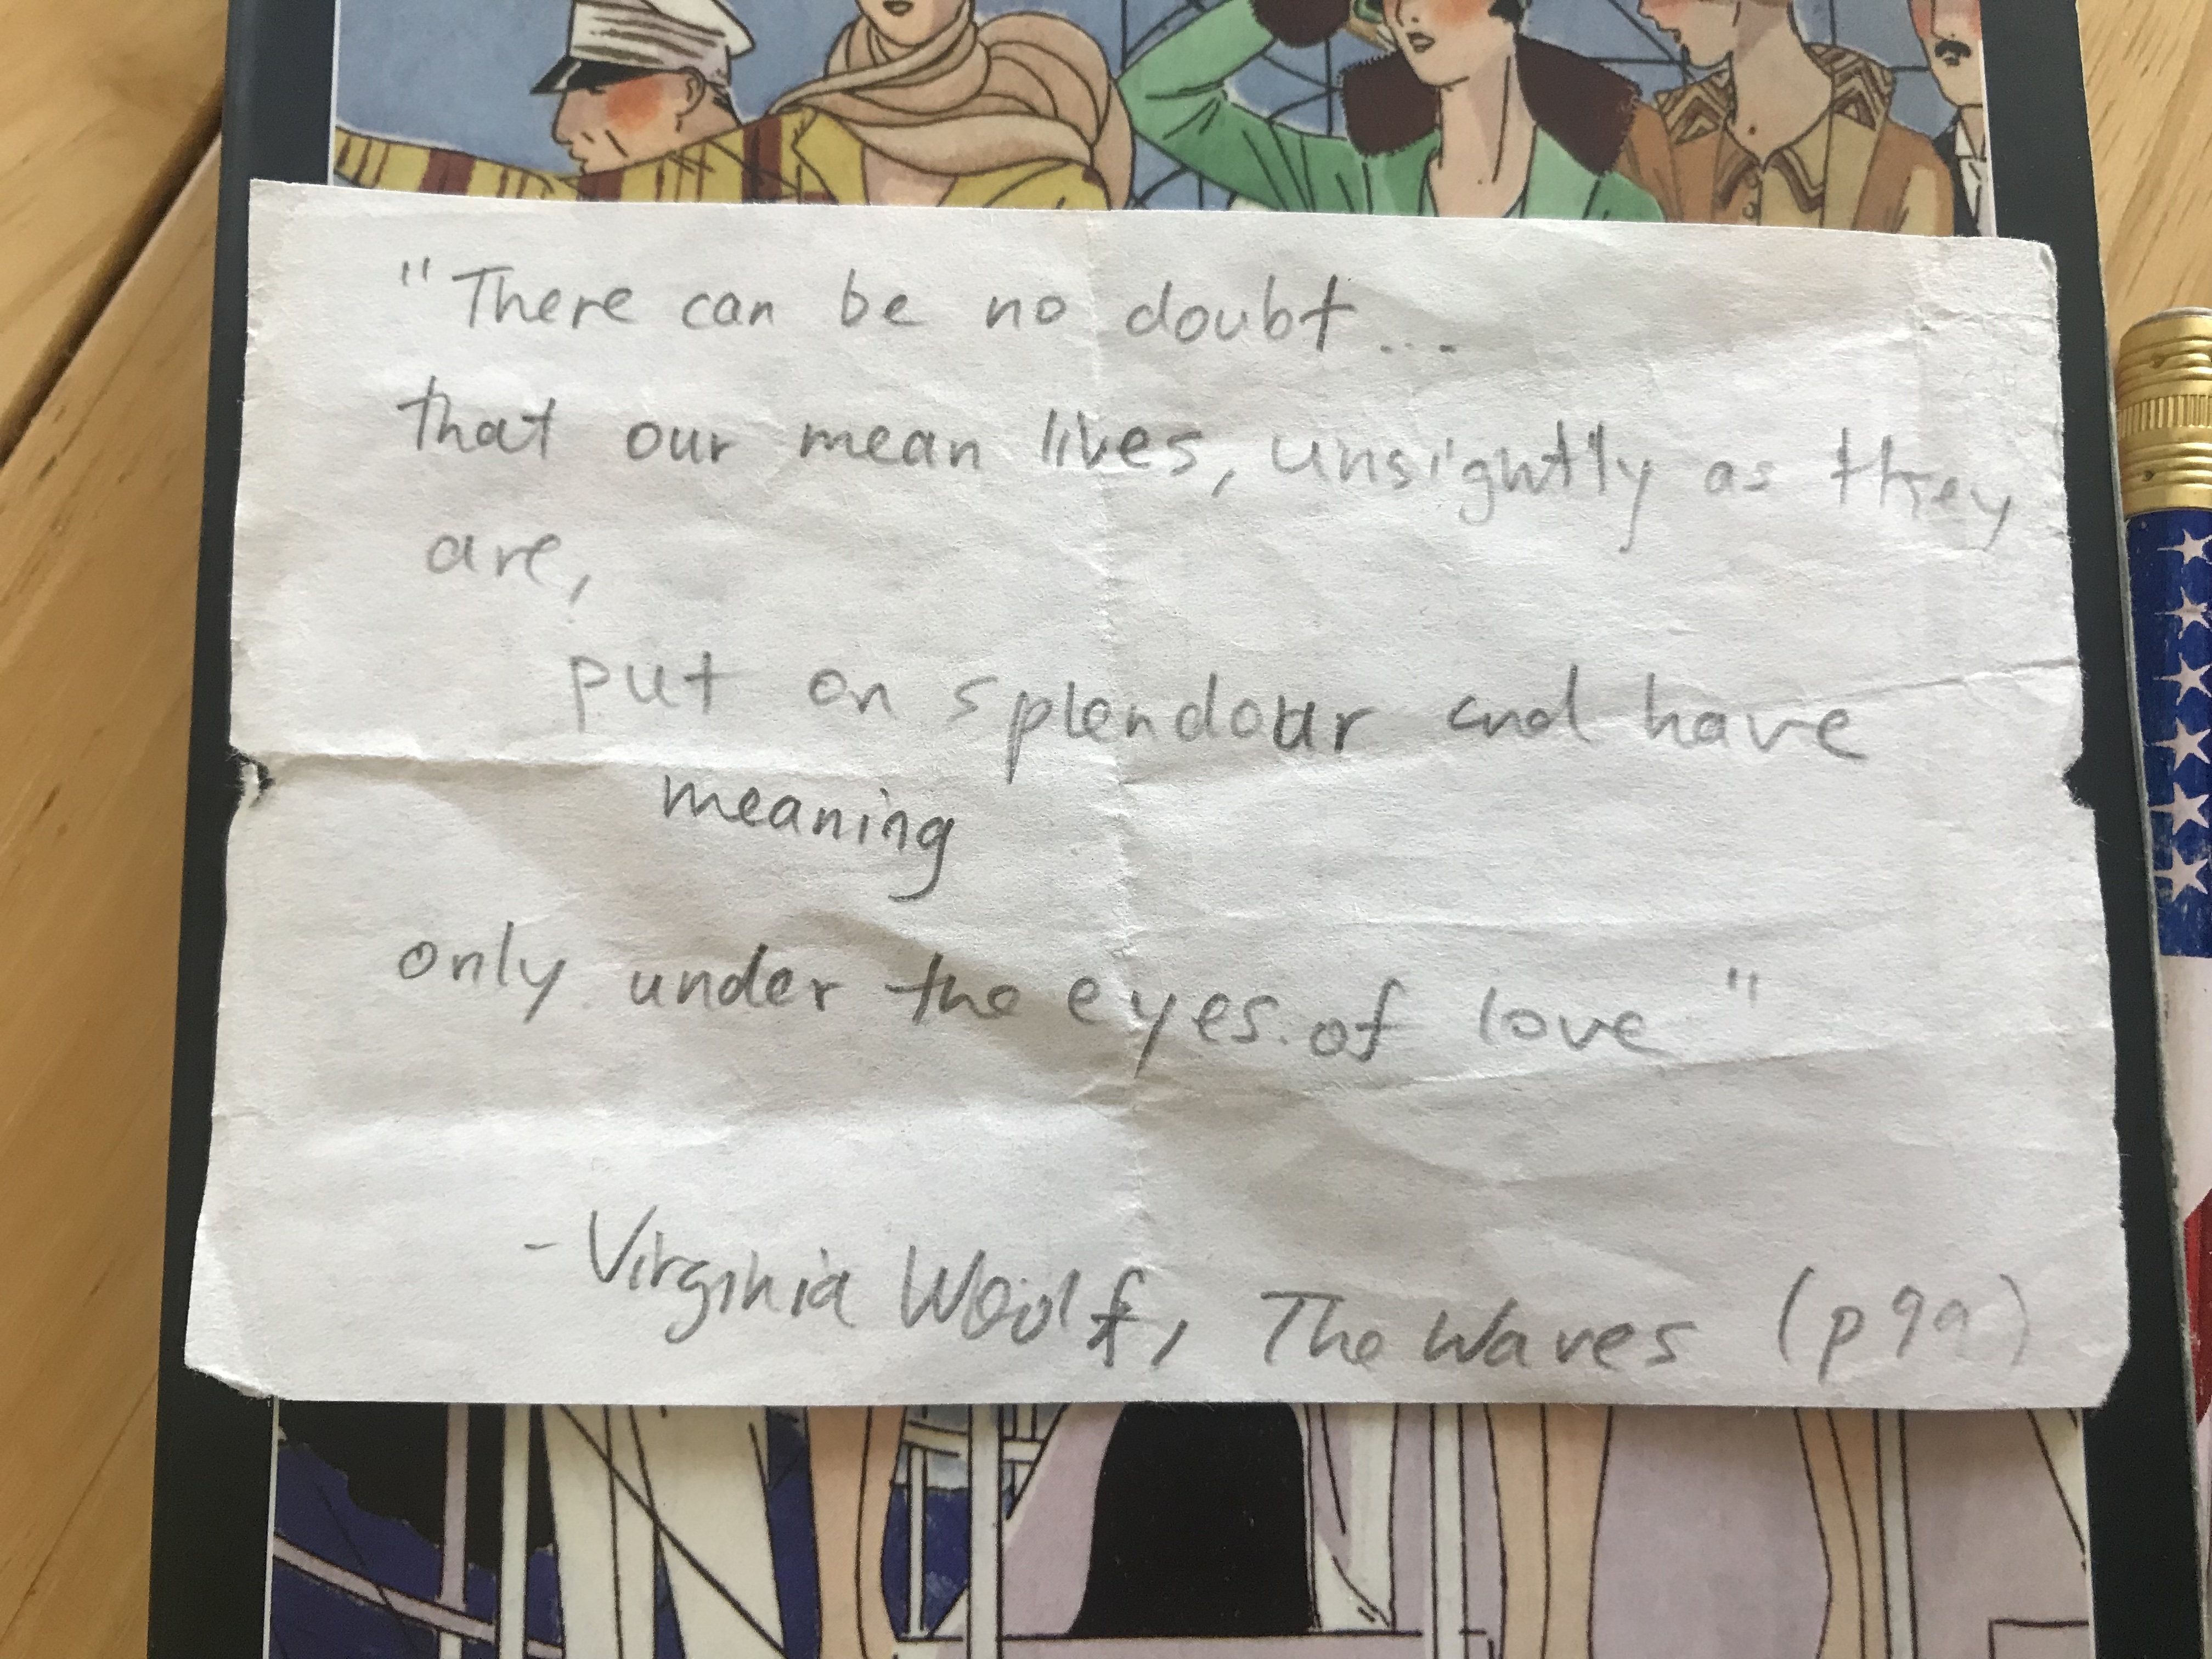 "There can be no doubt...
that our mean lives, unsightly as they
are,
put on splendour and have
meaning
only under the eyes of love"
- Virginia Woolf, The Waves (p99)